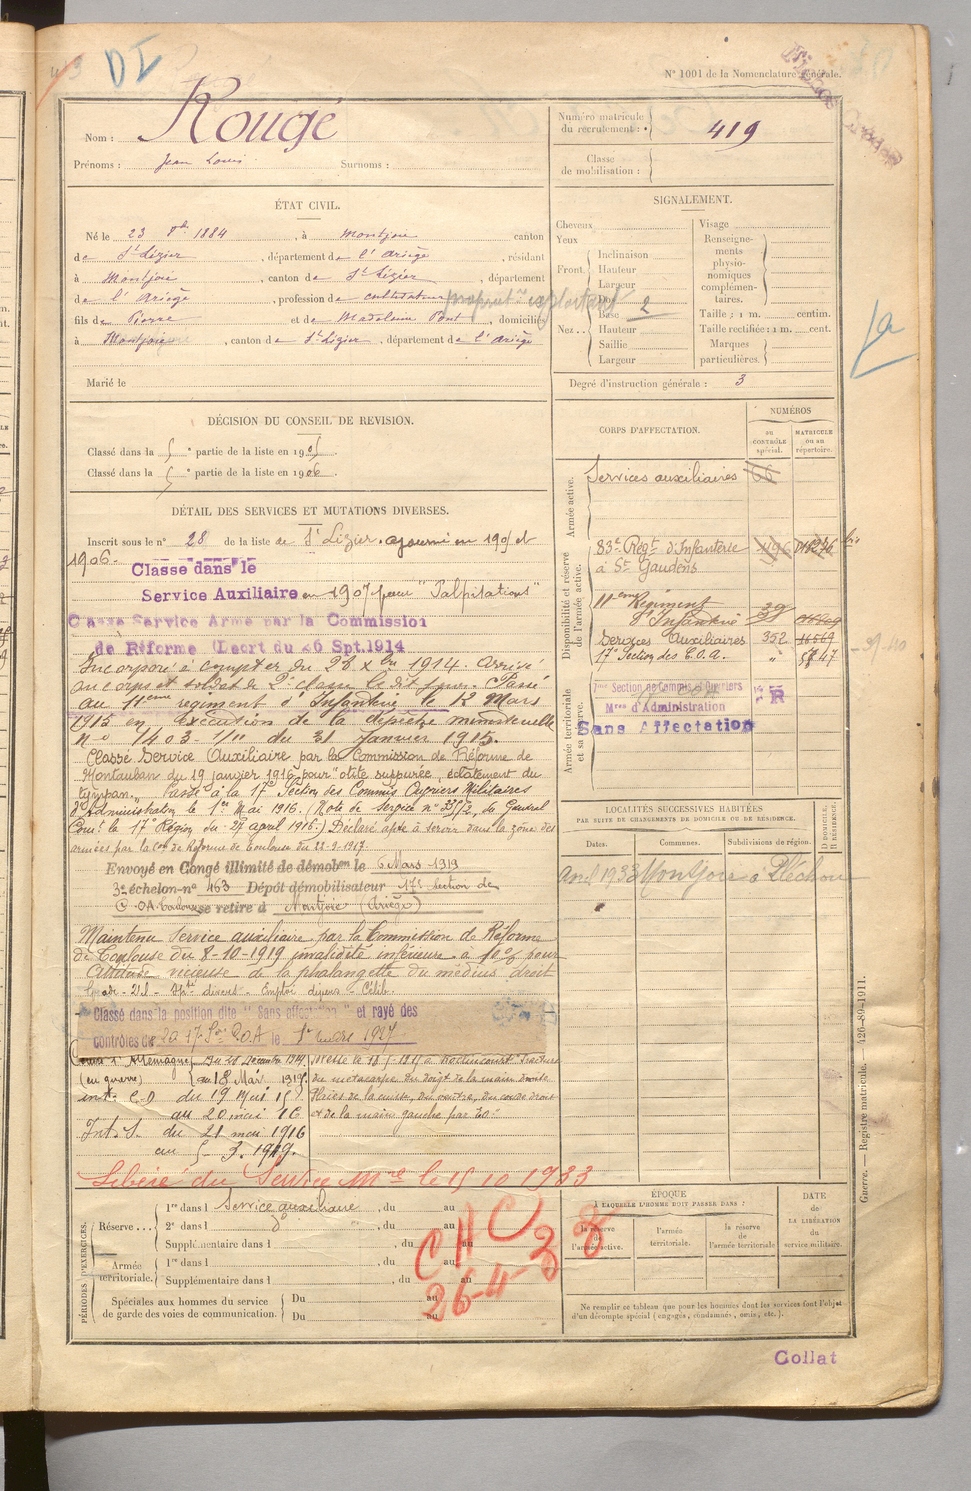 DI
N° 1001 de la Nomenclature générale.
Nom : Rougé
Prénoms : Jean Louis Surnoms :
Numéro matricule du recrutement : 419
Classe de mobilisation :
ÉTAT CIVIL.
Né le 23 1884, à Montjoie canton
de St Lézier, département de l'Ariège, résidant
à Montjoie, canton de St Lézier, département
de l'Ariège, profession de cultivateur
fils de Pierre et de Madeleine Pont, domiciliés
à Montjoie, canton de St Lézier, département de l'Ariège
Marié le
SIGNALEMENT.
Cheveux
Yeux
Front. Inclinaison
Hauteur
Largeur
Nez.. Base 2
Hauteur
Saillie
Largeur
Visage
Renseignements physionomiques complémentaires.
Taille : 1 m. centim.
Taille rectifiée : 1 m. cent.
Marques particulières.
Degré d'instruction générale : 3
DÉCISION DU CONSEIL DE REVISION.
Classé dans la 5° partie de la liste en 1905
Classé dans la 5° partie de la liste en 1906.
DÉTAIL DES SERVICES ET MUTATIONS DIVERSES.
Inscrit sous le n° 28 de la liste de St Lézier. ajourné en 1905 et
1906. Classé dans le
Service Auxiliaire en 1907 pour "Palpitations"
Classé Service Armé par la Commission
de Réforme (Decret du 26 Spt. 1914
Incorporé à compter du 28 Xbre 1914. Arrivé
au corps et soldat de 2e classe le dit jour. Passé
au 11eme régiment d'Infanterie le 12 Mars
1915 en exécution de la dépêche ministerielle
n° 1403-1/10 du 31 Janvier 1915.
Classé Service Auxiliaire par la Commission de Réforme de
Montauban du 19 janvier 1916 pour "otite suppurée, éclatement du
tympan." Passé à la 17e Section des Commis Ouvriers Militaires
d'Administration le 1er Mai 1916. (Note de Service n° 335/2 du Général
Comt la 17e Région du 27 avril 1916.) Déclaré apte à servir dans la zône des
armées par la Con de Réforme de Toulouse du 22-9-1917.
Envoyé en Congé illimité de démoben le 6 Mars 1919
3e échelon n° 463 Dépôt démobilisateur 17e Section de
C.O.A. Toulouse se retire à Montjoie (Ariège)
Maintenu Service auxiliaire par la Commission de Réforme
de Toulouse du 8-10-1919 invalidité inférieure à 10% pour
Attitude vicieuse de la phalangette du médius droit
Classé dans la position dite "Sans affectation" et rayé des
contrôles de la 17e Son C.O.A le 1er 1927
(en guerre)
int. C-D du 19 Mai 15
au 20 mai 16
Int. S. du 21 mai 1916
au 5-3-1919.
Blessé le 18-5-1915 à Roclincourt Fracture
du métacarpe du doigt de la main droite
Plaies de la cuisse, du ventre, du coude droit
et de la main gauche par EO.
Libéré du Service Mre le 15 10 1933
CORPS D'AFFECTATION.
NUMÉROS
au CONTRÔLE spécial.
MATRICULE ou au répertoire.
Armée active.
Services auxiliaires
Disponibilité et réserve de l'armée active.
83e Régt d'Infanterie
à St Gaudens
11eme Régiment
d'Infanterie
Services Auxiliaires 352 16569
17e Section des C.O.A. " 5847
Armée territoriale et sa réserve.
Section de Commis et Ouvriers
Mres d'Administration
R
Sans Affectation
LOCALITÉS SUCCESSIVES HABITÉES
PAR SUITE DE CHANGEMENTS DE DOMICILE OU DE RÉSIDENCE.
Dates. Communes. Subdivisions de région. D DOMICILE. R RÉSIDENCE.
Avril 1933 Montjoie
PÉRIODES D'EXERCICES.
Réserve... 1re dans l Service auxiliaire, du au
2e dans l do, du au
Supplémentaire dans l, du au
Armée territoriale. 1re dans l, du au
Supplémentaire dans l, du au
Spéciales aux hommes du service de garde des voies de communication. Du au
Du au
CAC
26-4-38
ÉPOQUE
À LAQUELLE L'HOMME DOIT PASSER DANS :
la réserve de l'armée active.
l'armée territoriale.
la réserve de l'armée territoriale
DATE DE LA LIBÉRATION du service militaire.
Ne remplir ce tableau que pour les hommes dont les services font l'objet
d'un décompte spécial (engagés, condamnés, omis, etc.).
Guerre. — Registre matricule. — 426-89-1911.
Collat